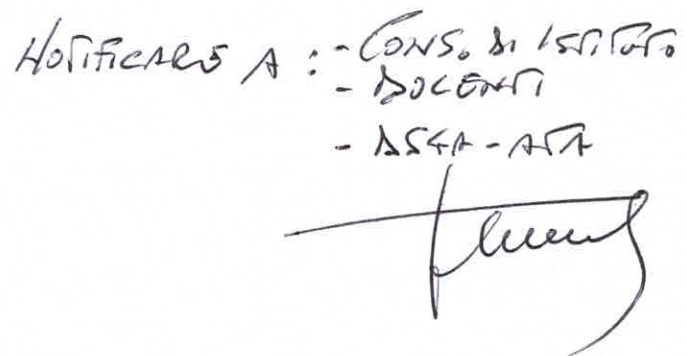 NOTIFICARE A : - CONS. DI ISTITUTO
- DOCENTI
- DSGA - ATA